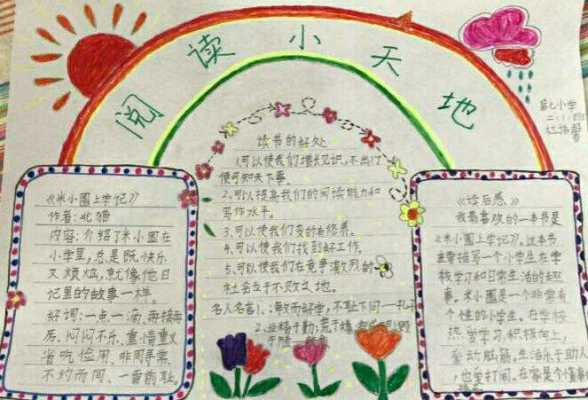 阅读小天地
第七小学
《米小圈上学记》
作者:北猫
内容:介绍了米小圈在
小学里,总是既快乐
又烦恼,就像他日
记里的故事一样。
好词:一点一滴、再接再
厉、闷闷不乐、重
省吃俭用、非同寻常、
不约而同、一
读书的好处
1.可以使我们增长见识,不出门
便可知天下事。
2.可以提高我们的阅读能力和
写作水平。
3.可以使我们变的有修养。
4.可以使我们找到好工作。
5.可以使我们在竞争激烈的
社会立于不败之地。
名人名言:1.敏而好学,不耻下问—孔子
2.业精于勤,荒于嬉
《读后感》
我最喜欢的一本书是
《米小圈上学记》。这本书
主要描写一个小学生在学
校学习和日常生活的趣
事。米小圈是一个非常有
个性的小学生。在学校
热爱学习,积极向上,
爱动脑筋。生活乐于助人
,也爱打闹。在家是个懂事